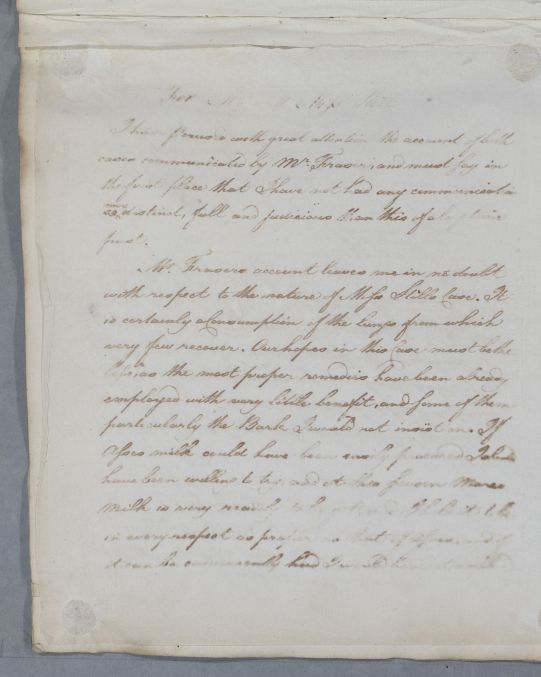 For Miss Still
I have perused with great attention the account of both
cases communicated by Mr. Fraser, and must say in
the first place that I have not had any communicatn
more distinct, full and judicious than this of a
past.
Mr. Frasers account leaves me in no doubt
with respect to the nature of Miss Stills Case. It
is certainly a Consumption of the lungs from which
very few recover. Our hopes in this Case must be the
less, as the most proper remedies have been already
employed with very little benefit, and some of them
particularly the Bark I would not insist on. If
Asses milk could have been easily procured I should
have been willing to try, and at this season Mares
Milk is very readily to be it to be
in every respect as proper as that of Asses, and if
it can be conveniently had I would have